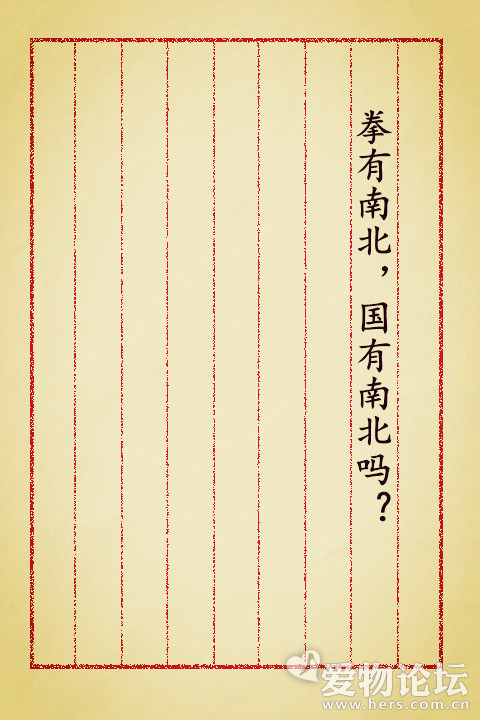 拳有南北，国有南北吗？
爱物论坛
www.hers.com.cn